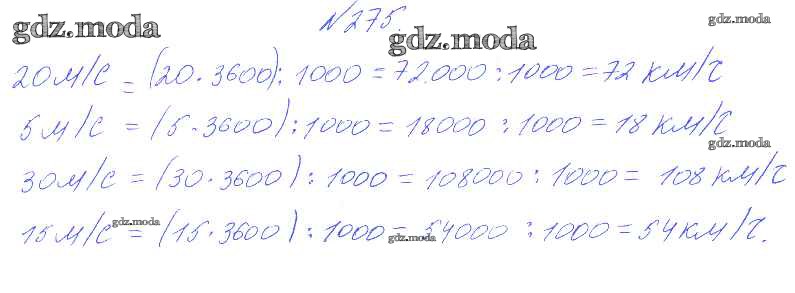 gdz.moda №275. gdz.moda
gdz.moda
20 м/с = (20·3600):1000 = 72.000:1000 = 72 км/ч
5 м/с = (5·3600):1000 = 18000:1000 = 18 км/ч
gdz.moda
30 м/с = (30·3600):1000 = 108000:1000 = 108 км/ч
gdz.moda
15 м/с = (15·3600):1000 = 54000:1000 = 54 км/ч.
gdz.moda